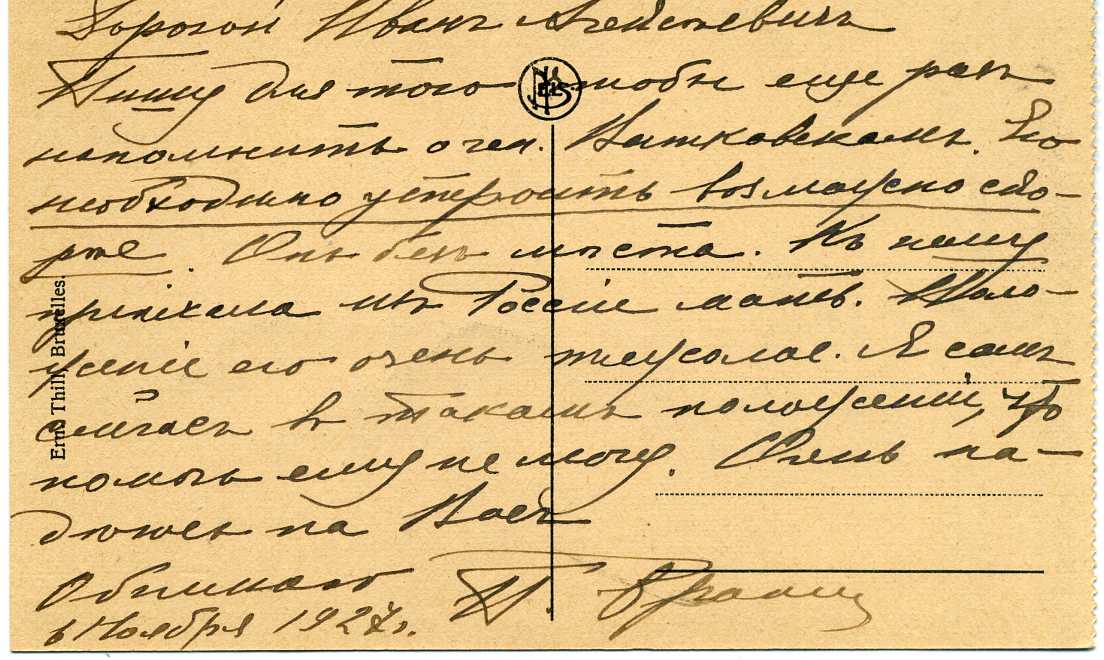 Дорогой Иванъ Алексѣевичъ
Пишу для того чтобы еще разъ
напомнить о ген. Витковскомъ. Его
необходимо устроить возможно ско-
рѣе. Онъ безъ мѣста. Къ нему
пріѣхала изъ Россіи мать. Поло-
женіе его очень тяжелое. Я самъ
сейчасъ въ такомъ положеніи, что
помочь ему не могу. Очень на-
дѣюсь на Васъ
Обнимаю П. Врангель
6 Ноября 1927 г.
NELS
Ern. Thill, Bruxelles.